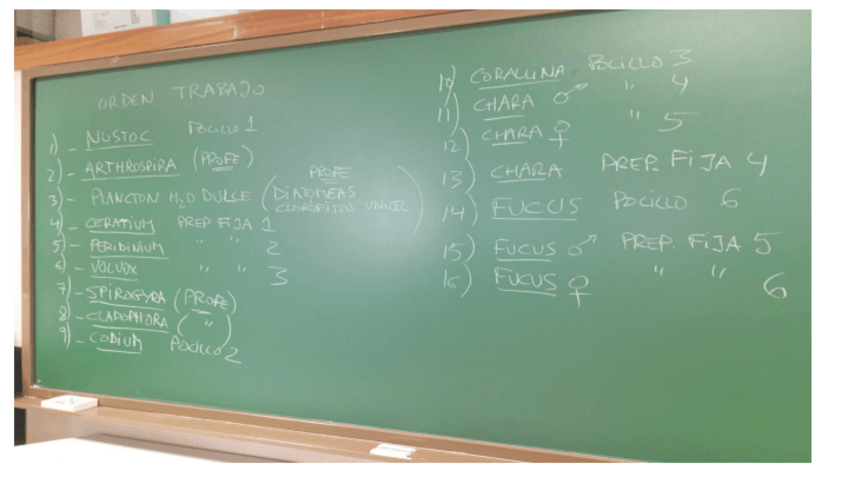 ORDEN TRABAJO
1) - NOSTOC POCILLO 1
2) - ARTHROSPIRA (PROFE)
3) - PLANCTON H2O DULCE (PROFE DINOMEAS CLOROFITAS UNICEL)
4) - CERATIUM PREP FIJA 1
5) - PERIDINIUM " " 2
6) - VOLVOX " " 3
7) - SPIROGYRA (PROFE)
8) - CLADOPHORA ( " )
9) - CODIUM POCILLO 2
10) CORALLINA POCILLO 3
11) CHARA ♂ " 4
12) CHARA ♀ " 5
13) CHARA PREP. FIJA 4
14) FUCUS POCILLO 6
15) FUCUS ♂ PREP. FIJA 5
16) FUCUS ♀ " " 6